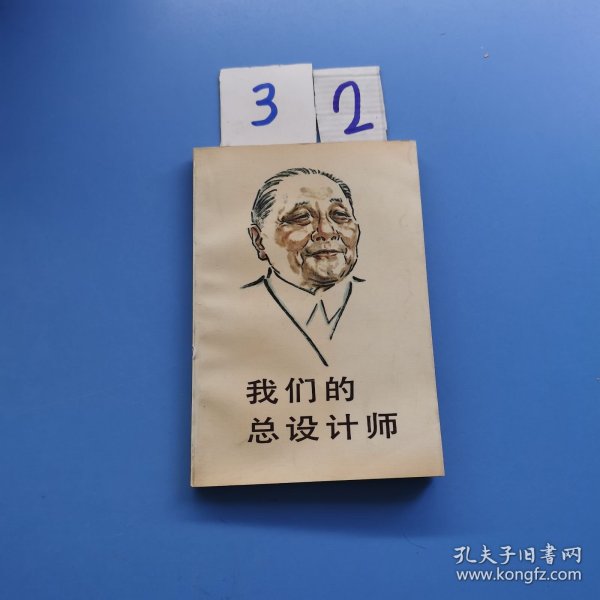 3 2
我们的
总设计师
孔夫子旧书网
www.kongfz.com